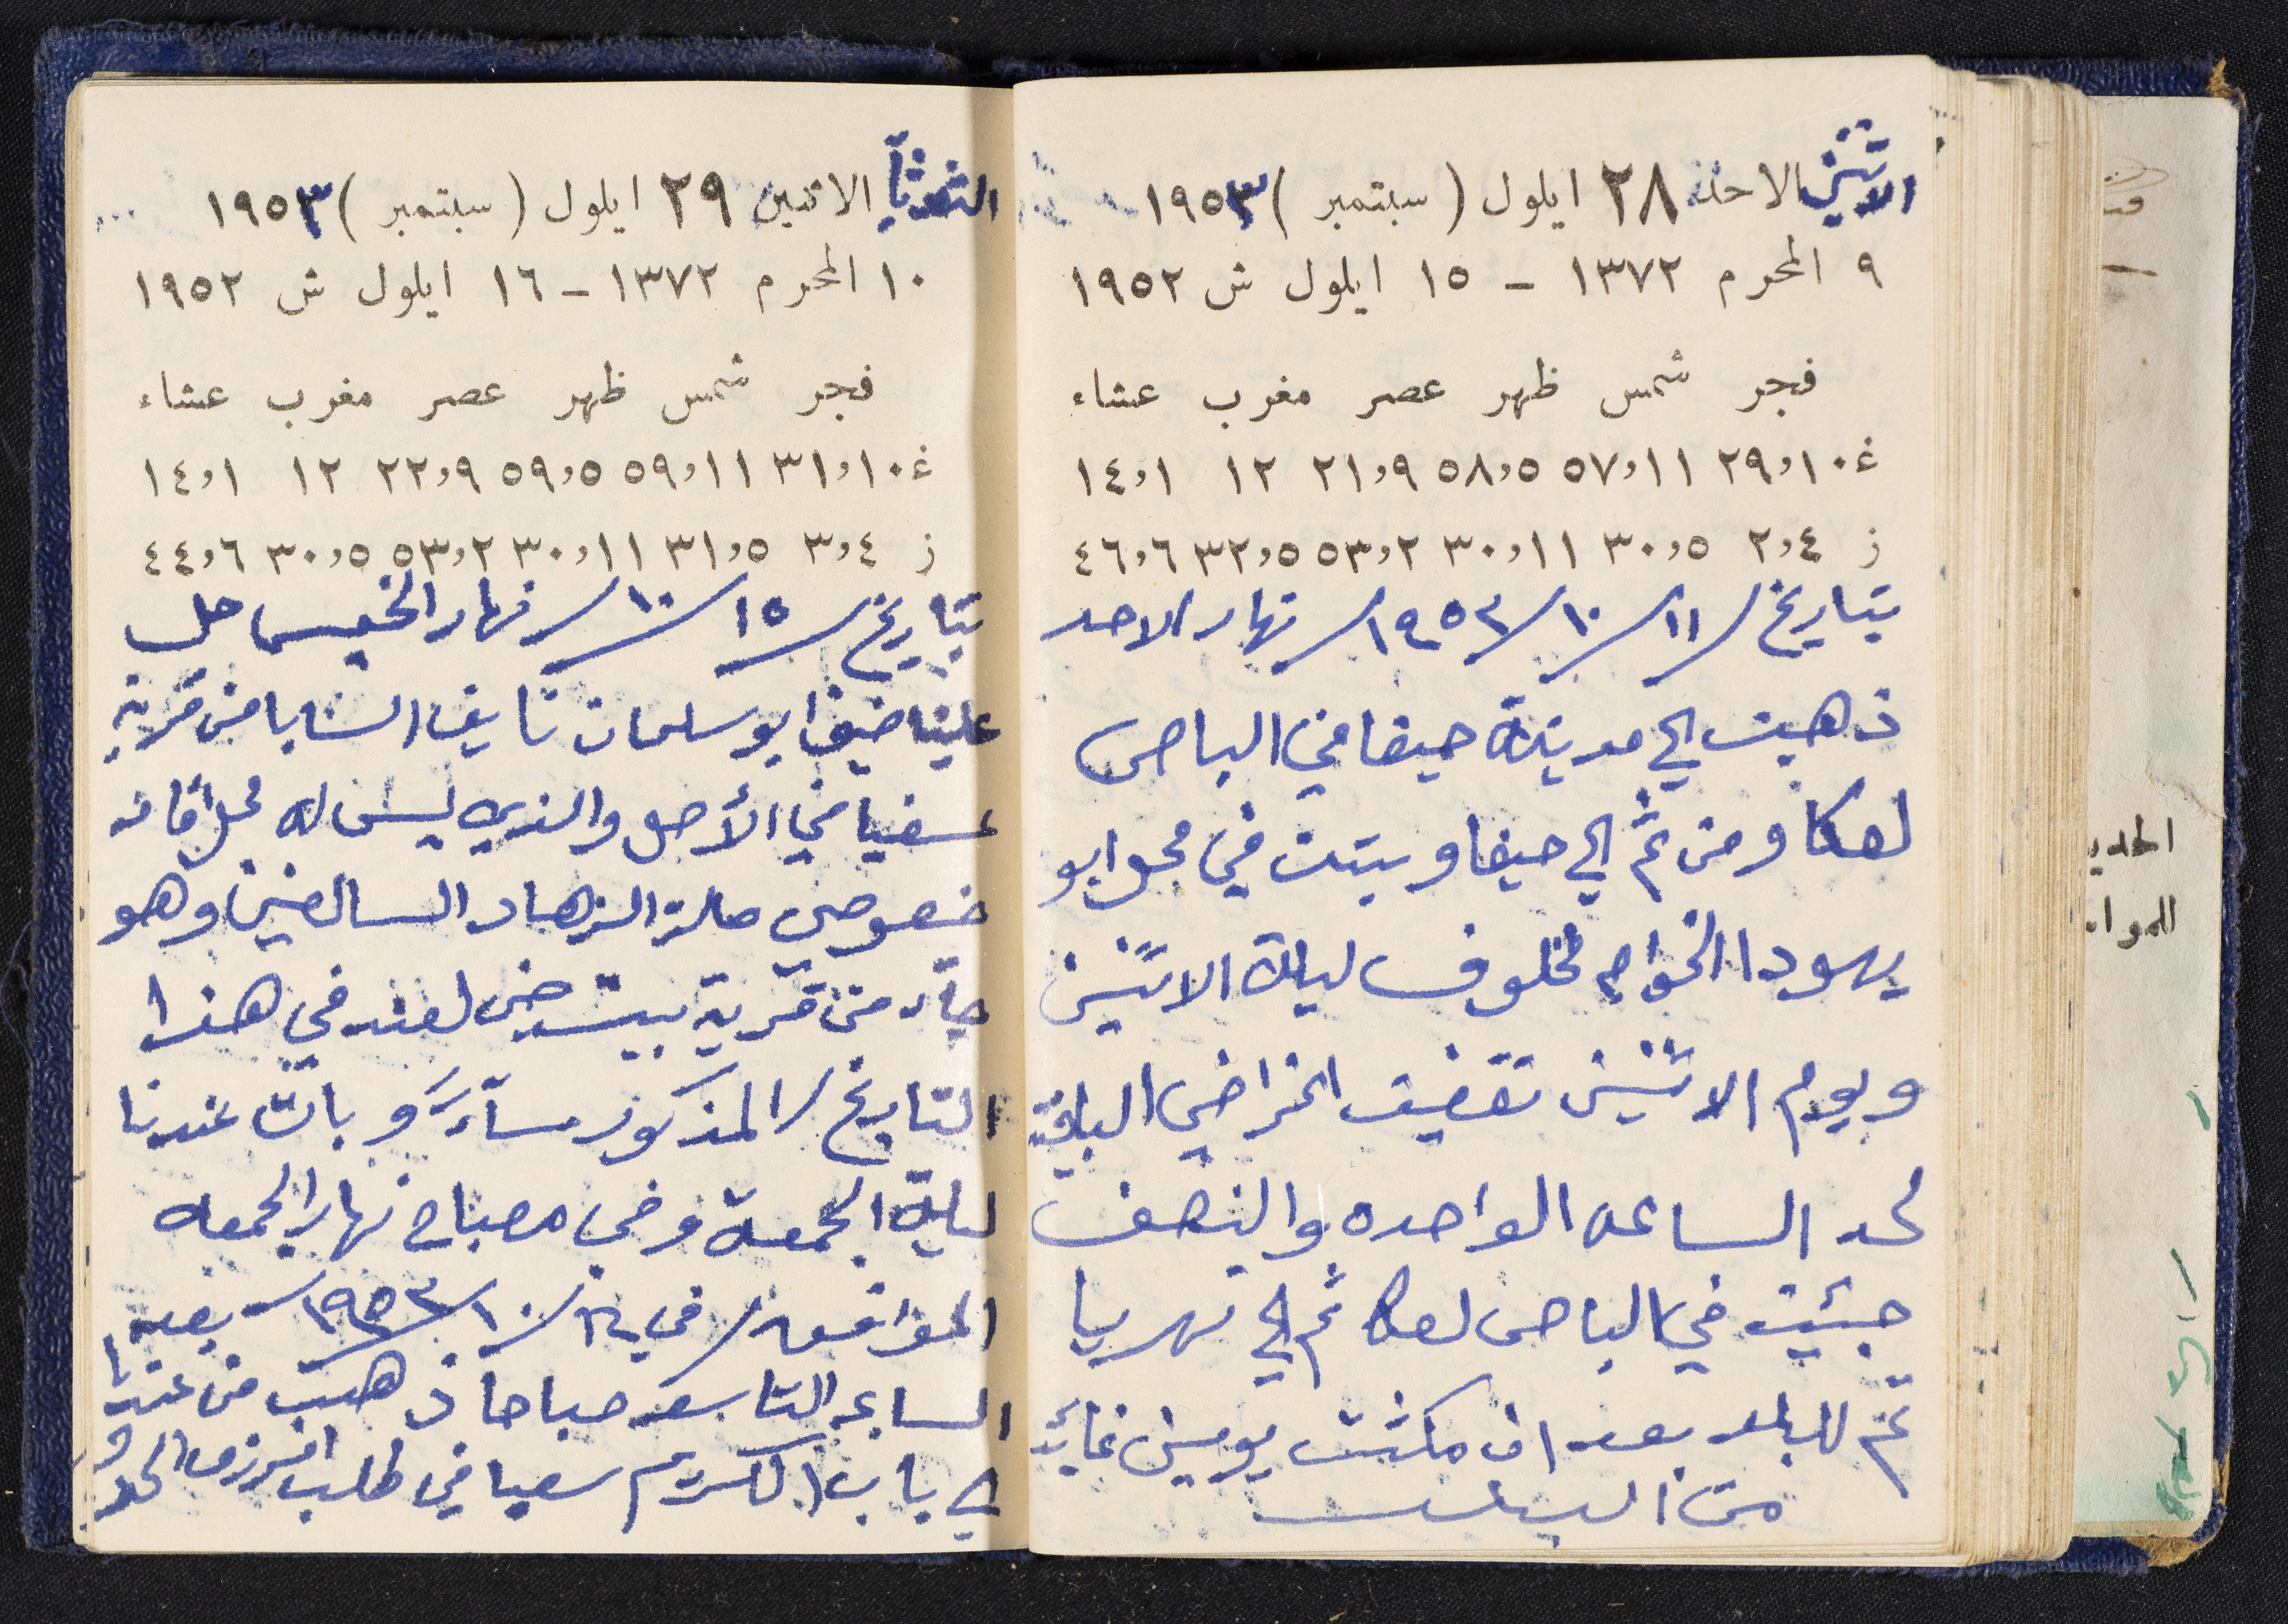 الاثنين الاحد ٢٨ ايلول ( سبتمبر ) ١٩٥٣
٩ المحرم ١٣٧٢ - ١٥ ايلول ش ١٩٥٢
فجر شمس ظهر عصر مغرب عشاء
غ ١٠،٢٩ ١١،٥٧ ٥،٥٨ ٩،٢١ ١٢ ١،١٤
ز ٤،٢ ٥،٣٠ ١١،٣٠ ٢،٥٣ ٥،٣٢ ٦،٤٦
بتاريخ / ١١ / ١٠ / ١٩٥٣ / نهار الاحد
ذهبت الى مدينة حيفا في الباص
لعكا ومن ثم الى حيفا وبتت في محل ابو
يهودا الخواجه مخلوف ليلة الاثنين
ويوم الاثنين تقضيت اغراضي الباقيه
لحد الساعه الواحده والنصف
جئيت في الباص لعكا ثم الى نهريا
ثم للبلد بعد ان مكثت يومين غايب
من البلد
الثلاثاء الاثنين ٢٩ ايلول ( سبتمبر ) ١٩٥٣
١٠ المحرم ١٣٧٢ - ١٦ ايلول ش ١٩٥٢
فجر شمس ظهر عصر مغرب عشاء
غ ١٠،٣١ ١١،٥٩ ٥،٥٩ ٩،٢٢ ١٢ ١،١٤
ز ٤،٣ ٥،٣١ ١١،٣٠ ٢،٥٣ ٥،٣٠ ٦،٤٤
بتاريخ / ١٥ / ١٠ / نهار الخميس حل
علينا ضيفا ابو سلمان نايف السابا من قرية
عسفيا في الأصل والذي ليس له محل أقامه
خصوصي حالة الزهاد السالفين وهو
جآء من قرية بيت جن لعند في هذا
التاريخ / المذكور مسآءً وبات عندنا
ليلة الجمعة وفي صباح نهار الجمعه
الموافقه / في ١٦ / ١٠ / ١٩٥٣ / بعد
الساعه التاسعه صباحا ذهب من عندنا
الى باب الكريم سعيا في طلب الرزق الحلال